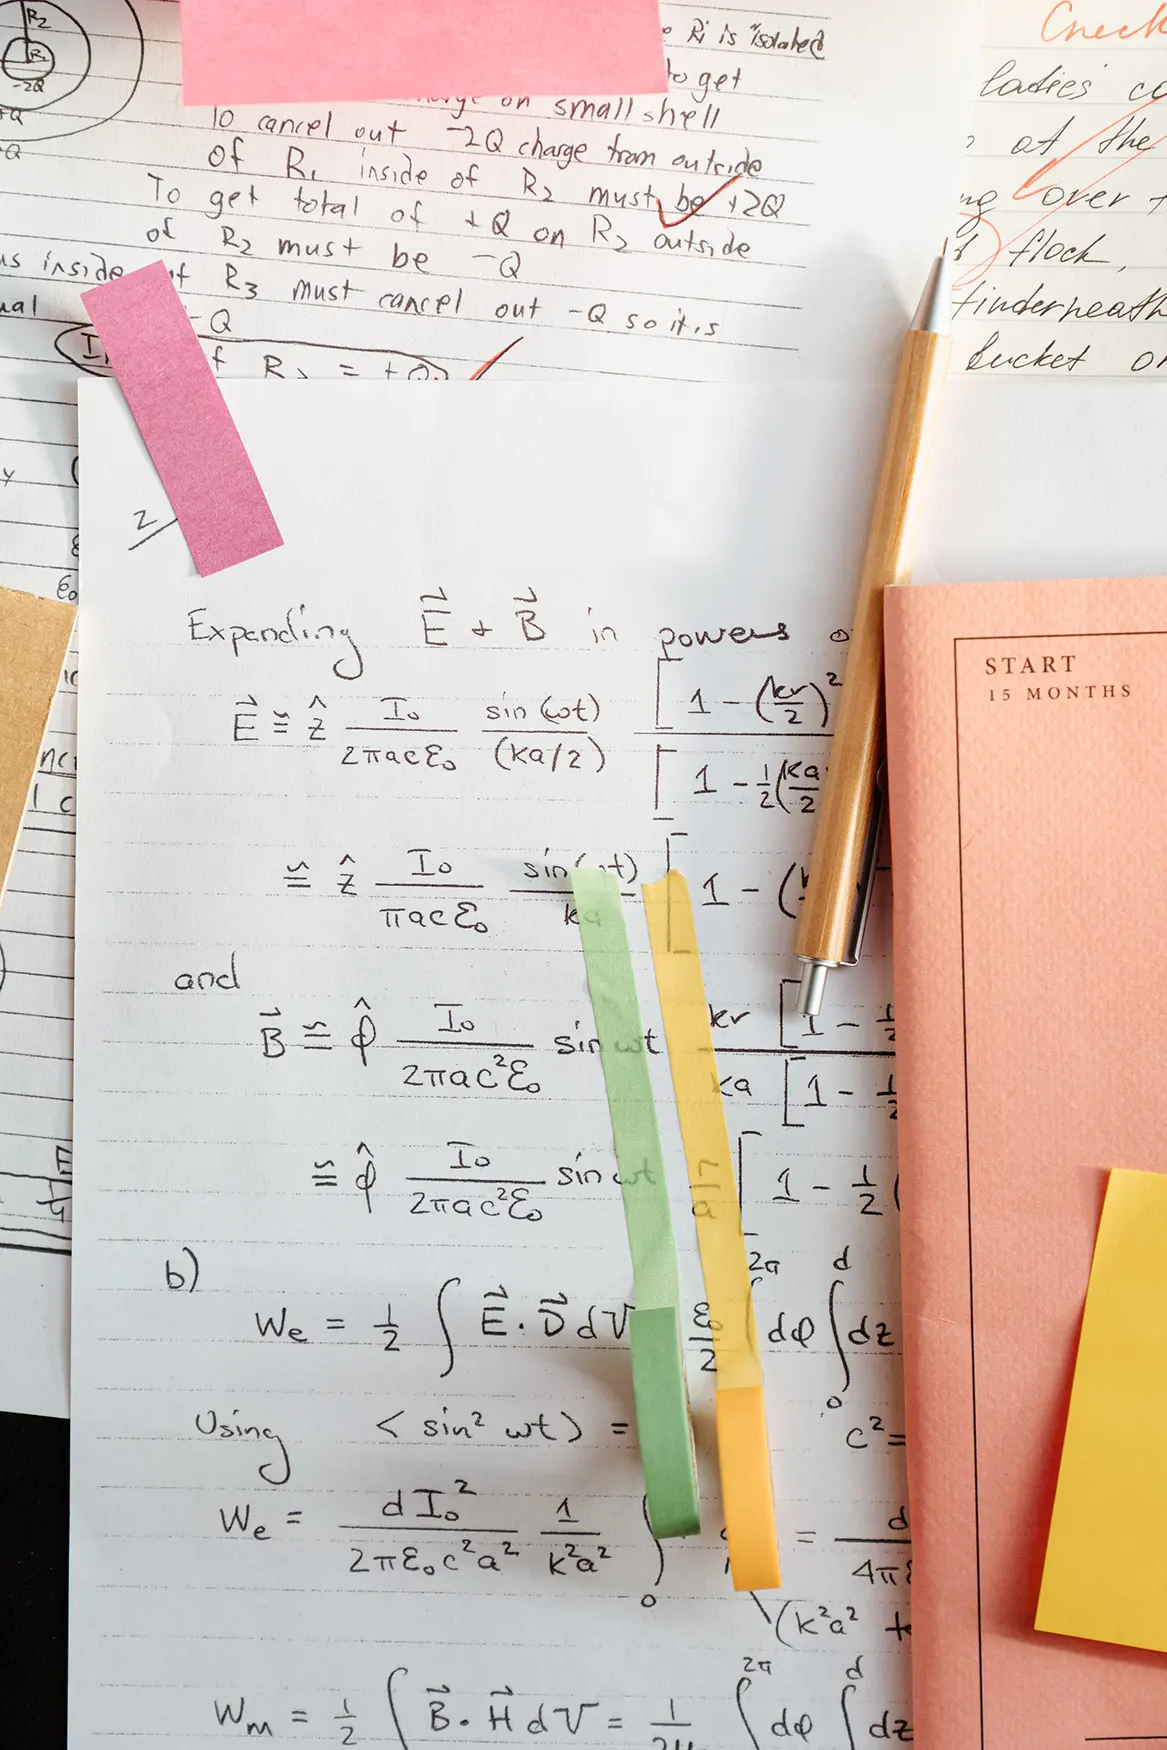 R₂
R₁
-2Q
Rᵢ is "isolated
to get
on small shell
To cancel out -2Q charge from outside
of R₁ inside of R₂ must be +2Q
To get total of +Q on R₂ outside
of R₂ must be -Q
inside of R₃ must cancel out -Q so it is
-Q
R₂ = +Q
Check
ladies
at the
over
flock,
underneath
bucket
2
ε₀
Expanding E⃗ + B⃗ in powers
E⃗ ≅ ẑ I₀/2πacε₀ sin(ωt)/(ka/2) [1 - (kr/2)²
[1 - ½(ka/2
≅ ẑ I₀/πacε₀ sin(ωt)/ka [1 - (
and
B⃗ ≅ φ̂ I₀/2πac²ε₀ sin ωt kr/ka [1 - ½
[1 - ½
≅ φ̂ I₀/2πac²ε₀ sin ωt r/a [1 - ½(
b)
We = ½ ∫ E⃗ · D⃗ dV ε₀/2 ∫2π dφ ∫₀ᵈ dz
Using < sin² ωt > = c² =
We = dI₀²/2πε₀c²a² 1/k²a² ∫₀ = d/4π
(k²a² +
Wm = ½ ∫ B⃗ · H⃗ dV = 1/2μ ∫2π dφ ∫d dz
START
15 MONTHS